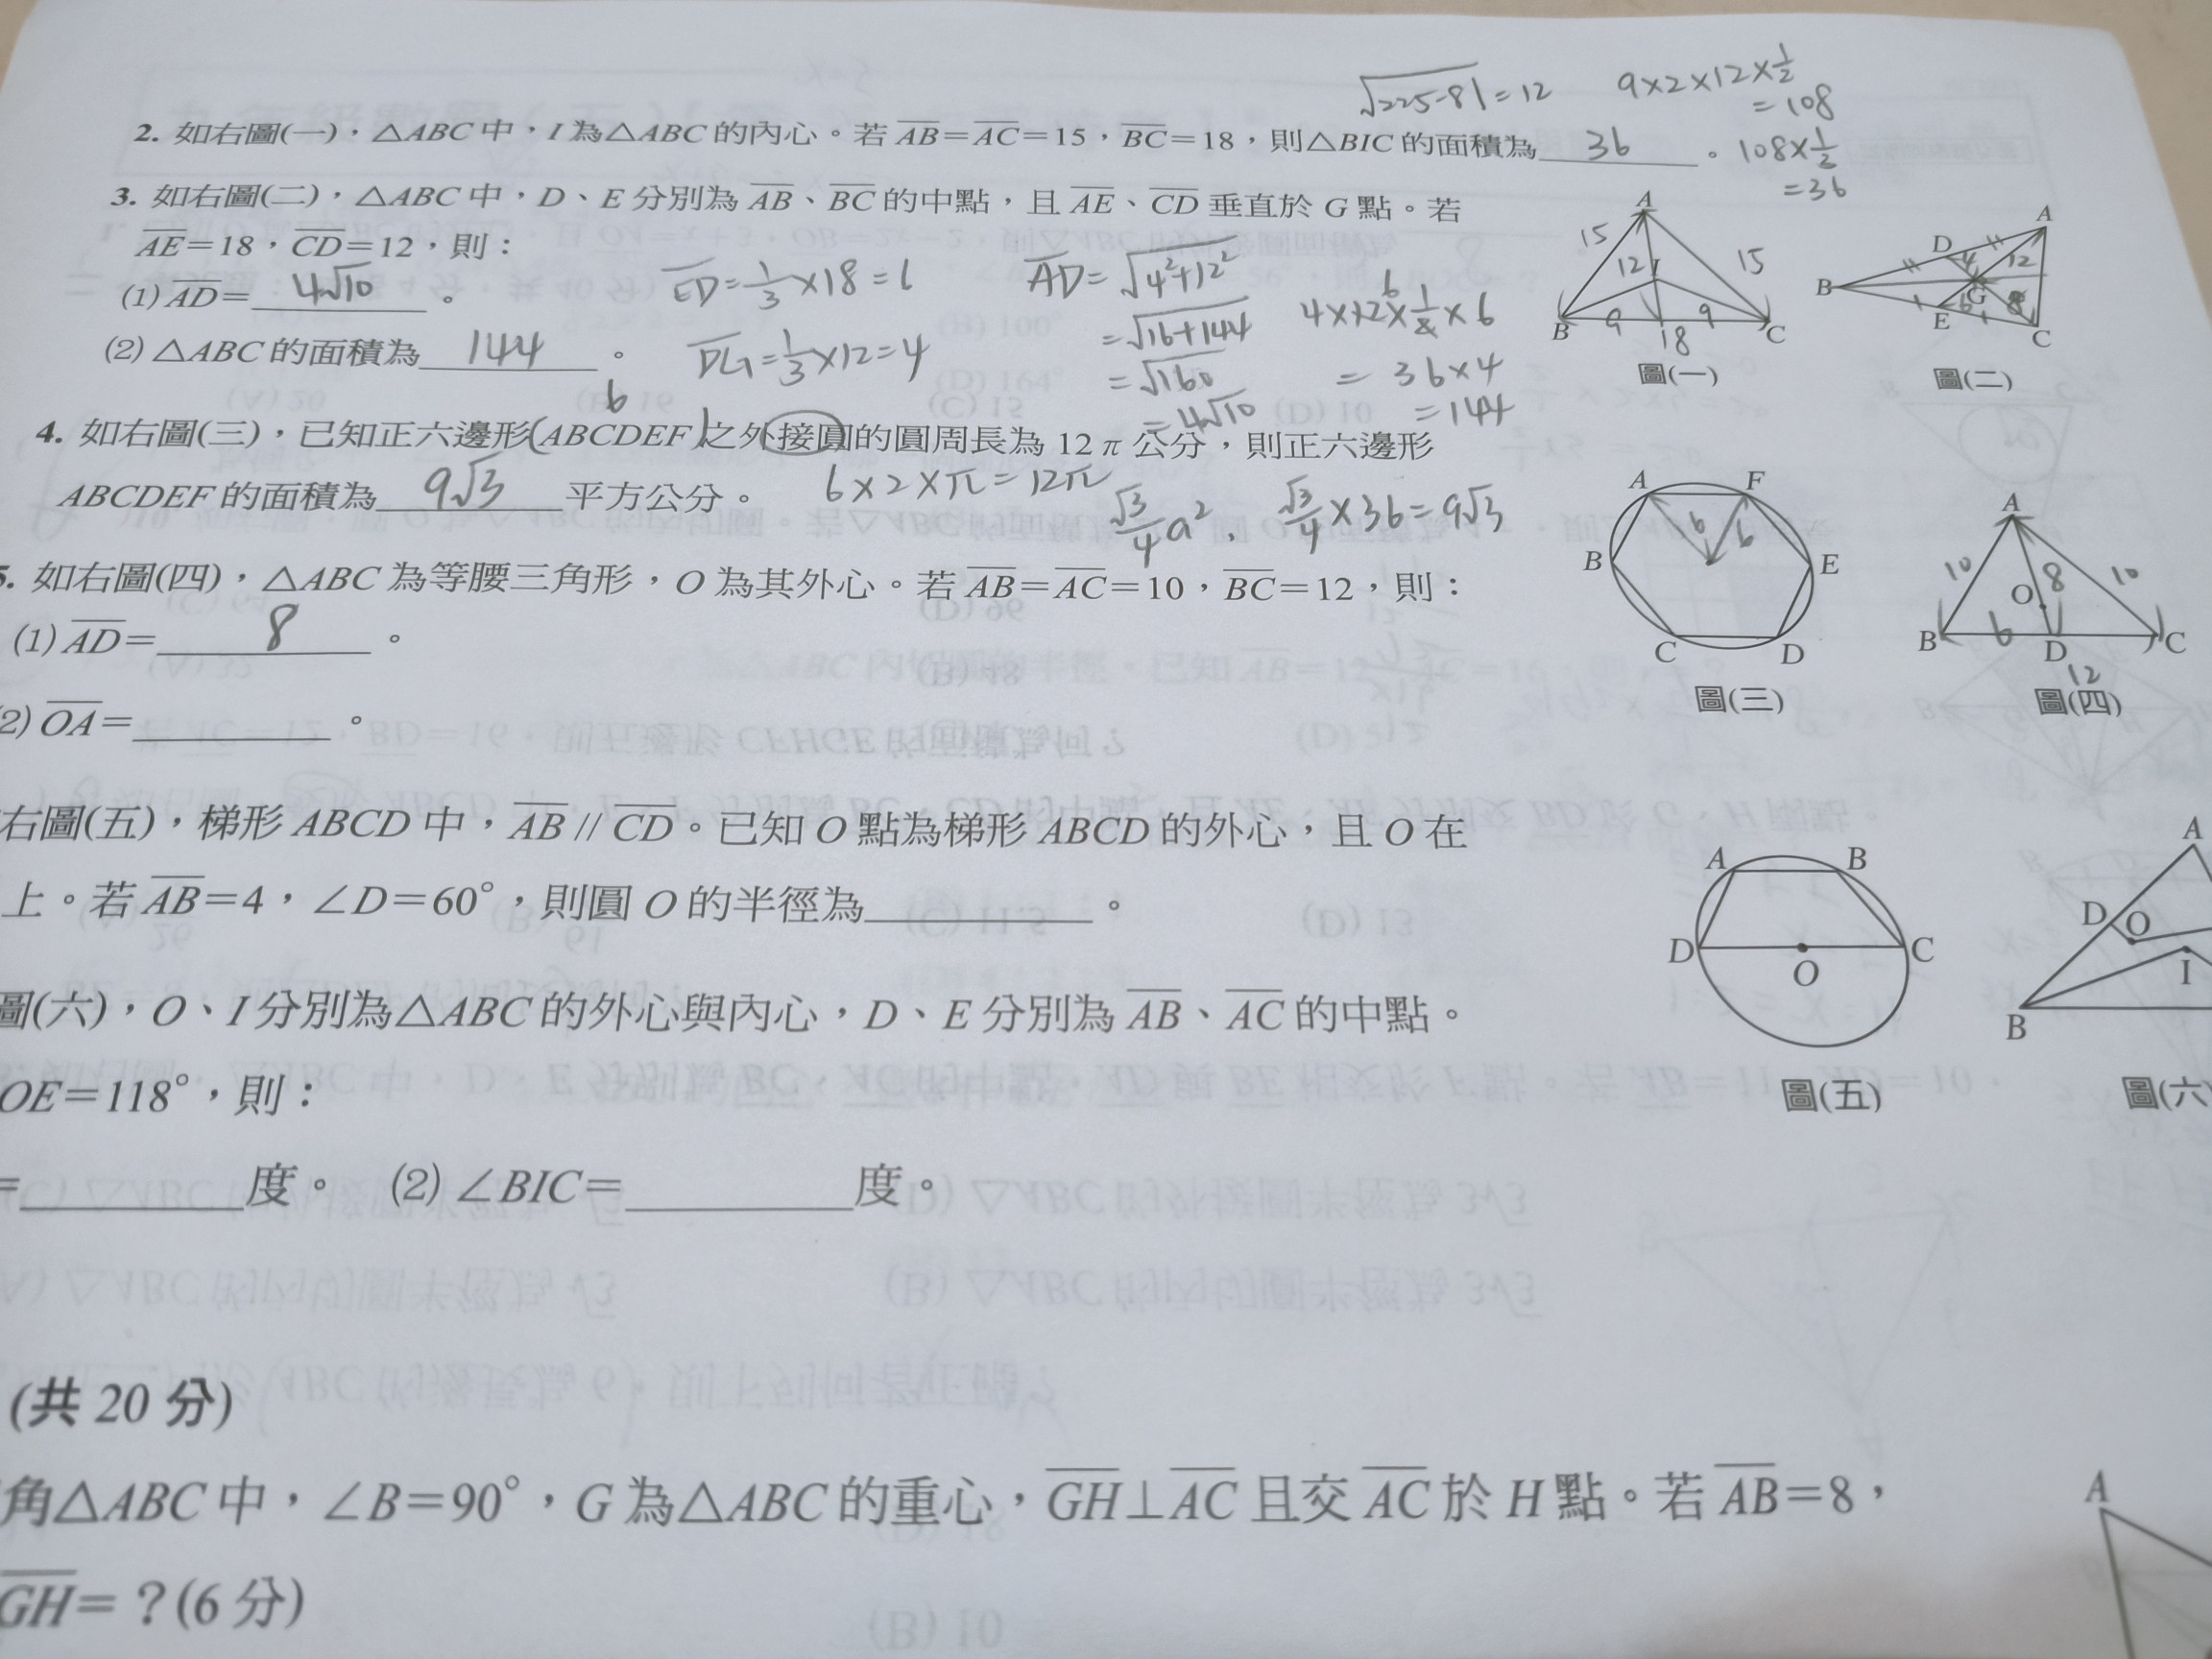 √225-81=12
9×2×12×1/2
=108
2. 如右圖(一)，△ABC 中，I 為△ABC 的內心。若 AB=AC=15，BC=18，則△BIC 的面積為 36 。
108×1/3
=36
3. 如右圖(二)，△ABC 中，D、E 分別為 AB、BC 的中點，且 AE、CD 垂直於 G 點。若
AE=18，CD=12，則：
(1) AD= 4√10 。
=1/3×18=6
AD=√4²+12²
=√16+144
=√160
=4√10
(2) △ABC 的面積為 144 。
DG=1/3×12=4
6
4×12×1/2×6
=36×4
=144
A
15
15
12
I
B
9
9
C
18
圖(一)
A
D
4
12
B
G
6
8
E
C
圖(二)
6
4. 如右圖(三)，已知正六邊形(ABCDEF)之外接圓的圓周長為 12π 公分，則正六邊形
ABCDEF 的面積為 9√3 平方公分。
6×2×π=12π
√3/4 a²,
√3/4×36=9√3
5. 如右圖(四)，△ABC 為等腰三角形，O 為其外心。若 AB=AC=10，BC=12，則：
(1) AD= 8 。
(2) OA= 。
A
F
6
6
B
E
C
D
圖(三)
A
10
8
10
O
B
6
D
C
12
圖(四)
右圖(五)，梯形 ABCD 中，AB // CD。已知 O 點為梯形 ABCD 的外心，且 O 在
上。若 AB=4，∠D=60°，則圓 O 的半徑為 。
A
B
D
C
O
圖(五)
圖(六)，O、I 分別為△ABC 的外心與內心，D、E 分別為 AB、AC 的中點。
OE=118°，則：
= 度。 (2) ∠BIC= 度。
A
D
O
I
B
圖(六
(共 20 分)
角△ABC 中，∠B=90°，G 為△ABC 的重心，GH⊥AC 且交 AC 於 H 點。若 AB=8，
GH=？(6 分)
A